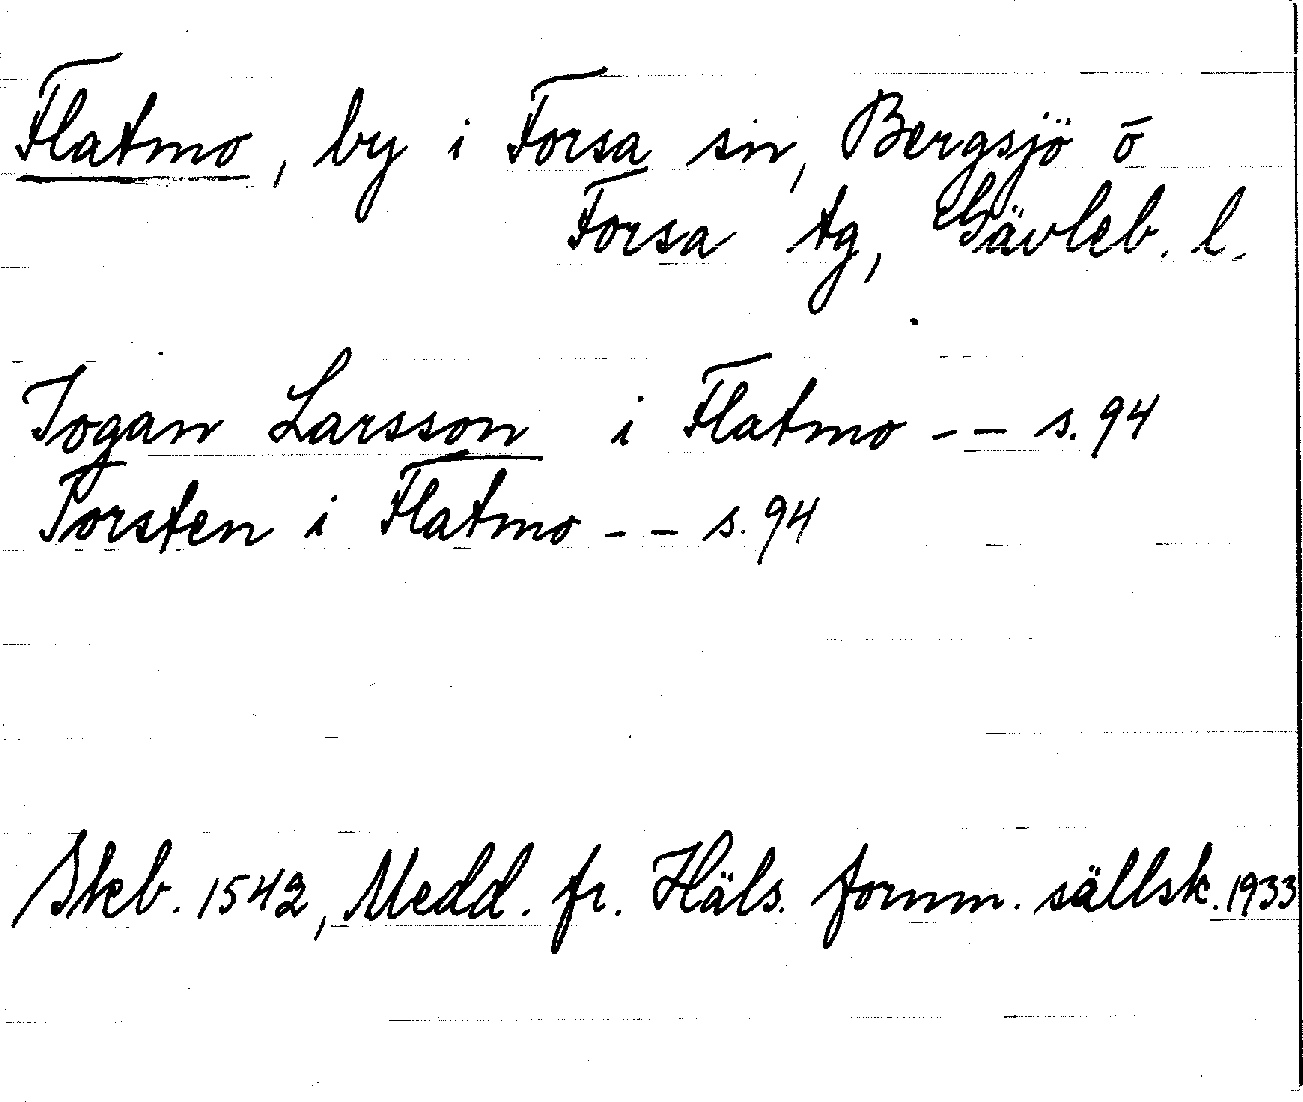 Flatmo, by i Forsa sn, Bergsjö o
Forsa tg, Gävleb. l.
Jogan Larsson i Flatmo -- s. 94
Torsten i Flatmo -- s. 94
Skeb. 1542, Medd. fr. Häls. fornm. sällsk. 1933